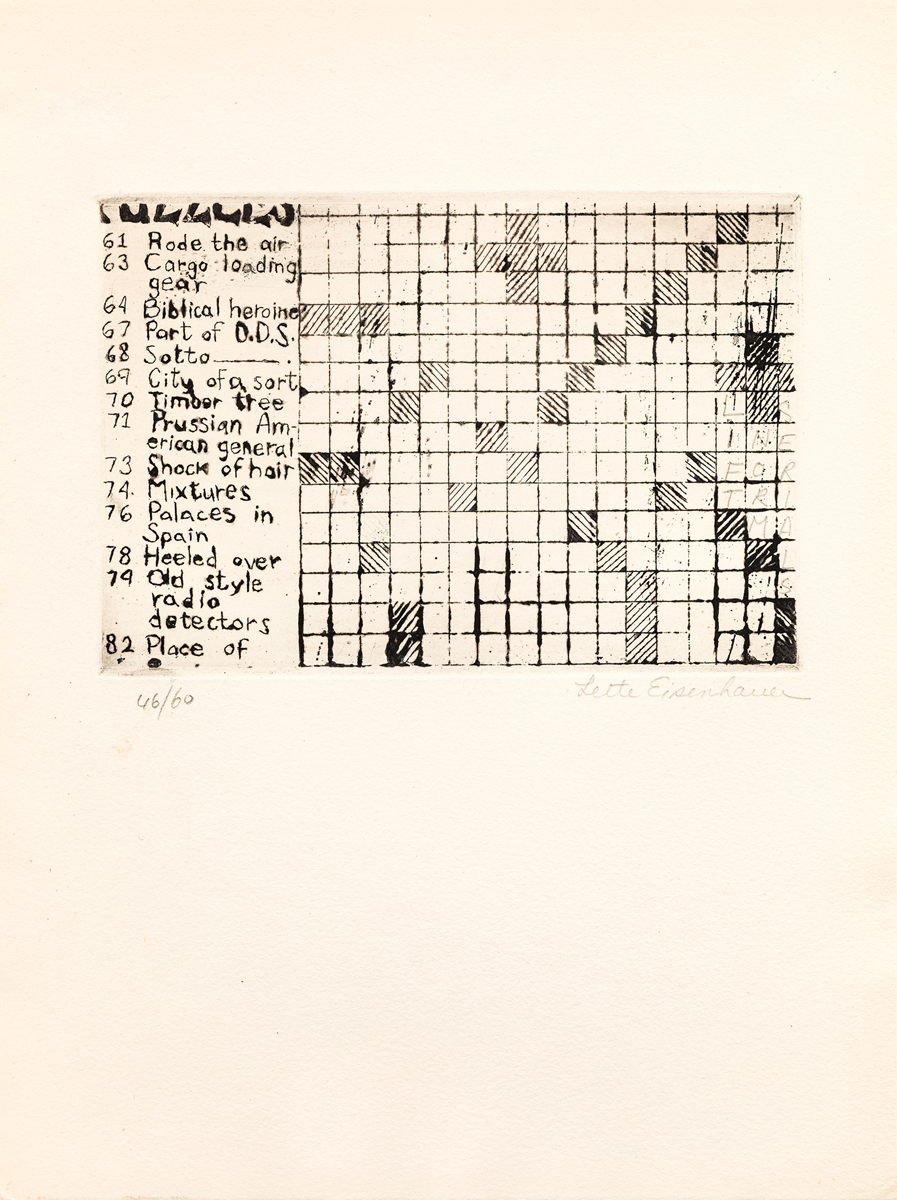 61 Rode the air
63 Cargo loading
gear
64 Biblical heroine
67 Part of D.D.S.
68 Sotto ———.
69 City of a sort
70 Timber tree
71 Prussian Am-
erican general
73 Shock of hair
74. Mixtures
76 Palaces in
Spain
78 Heeled over
79 Old style
radio
detectors
82 Place of
L S
I N E
F O R
T R I
M A
L
S
46/60
Lette Eisenhauer